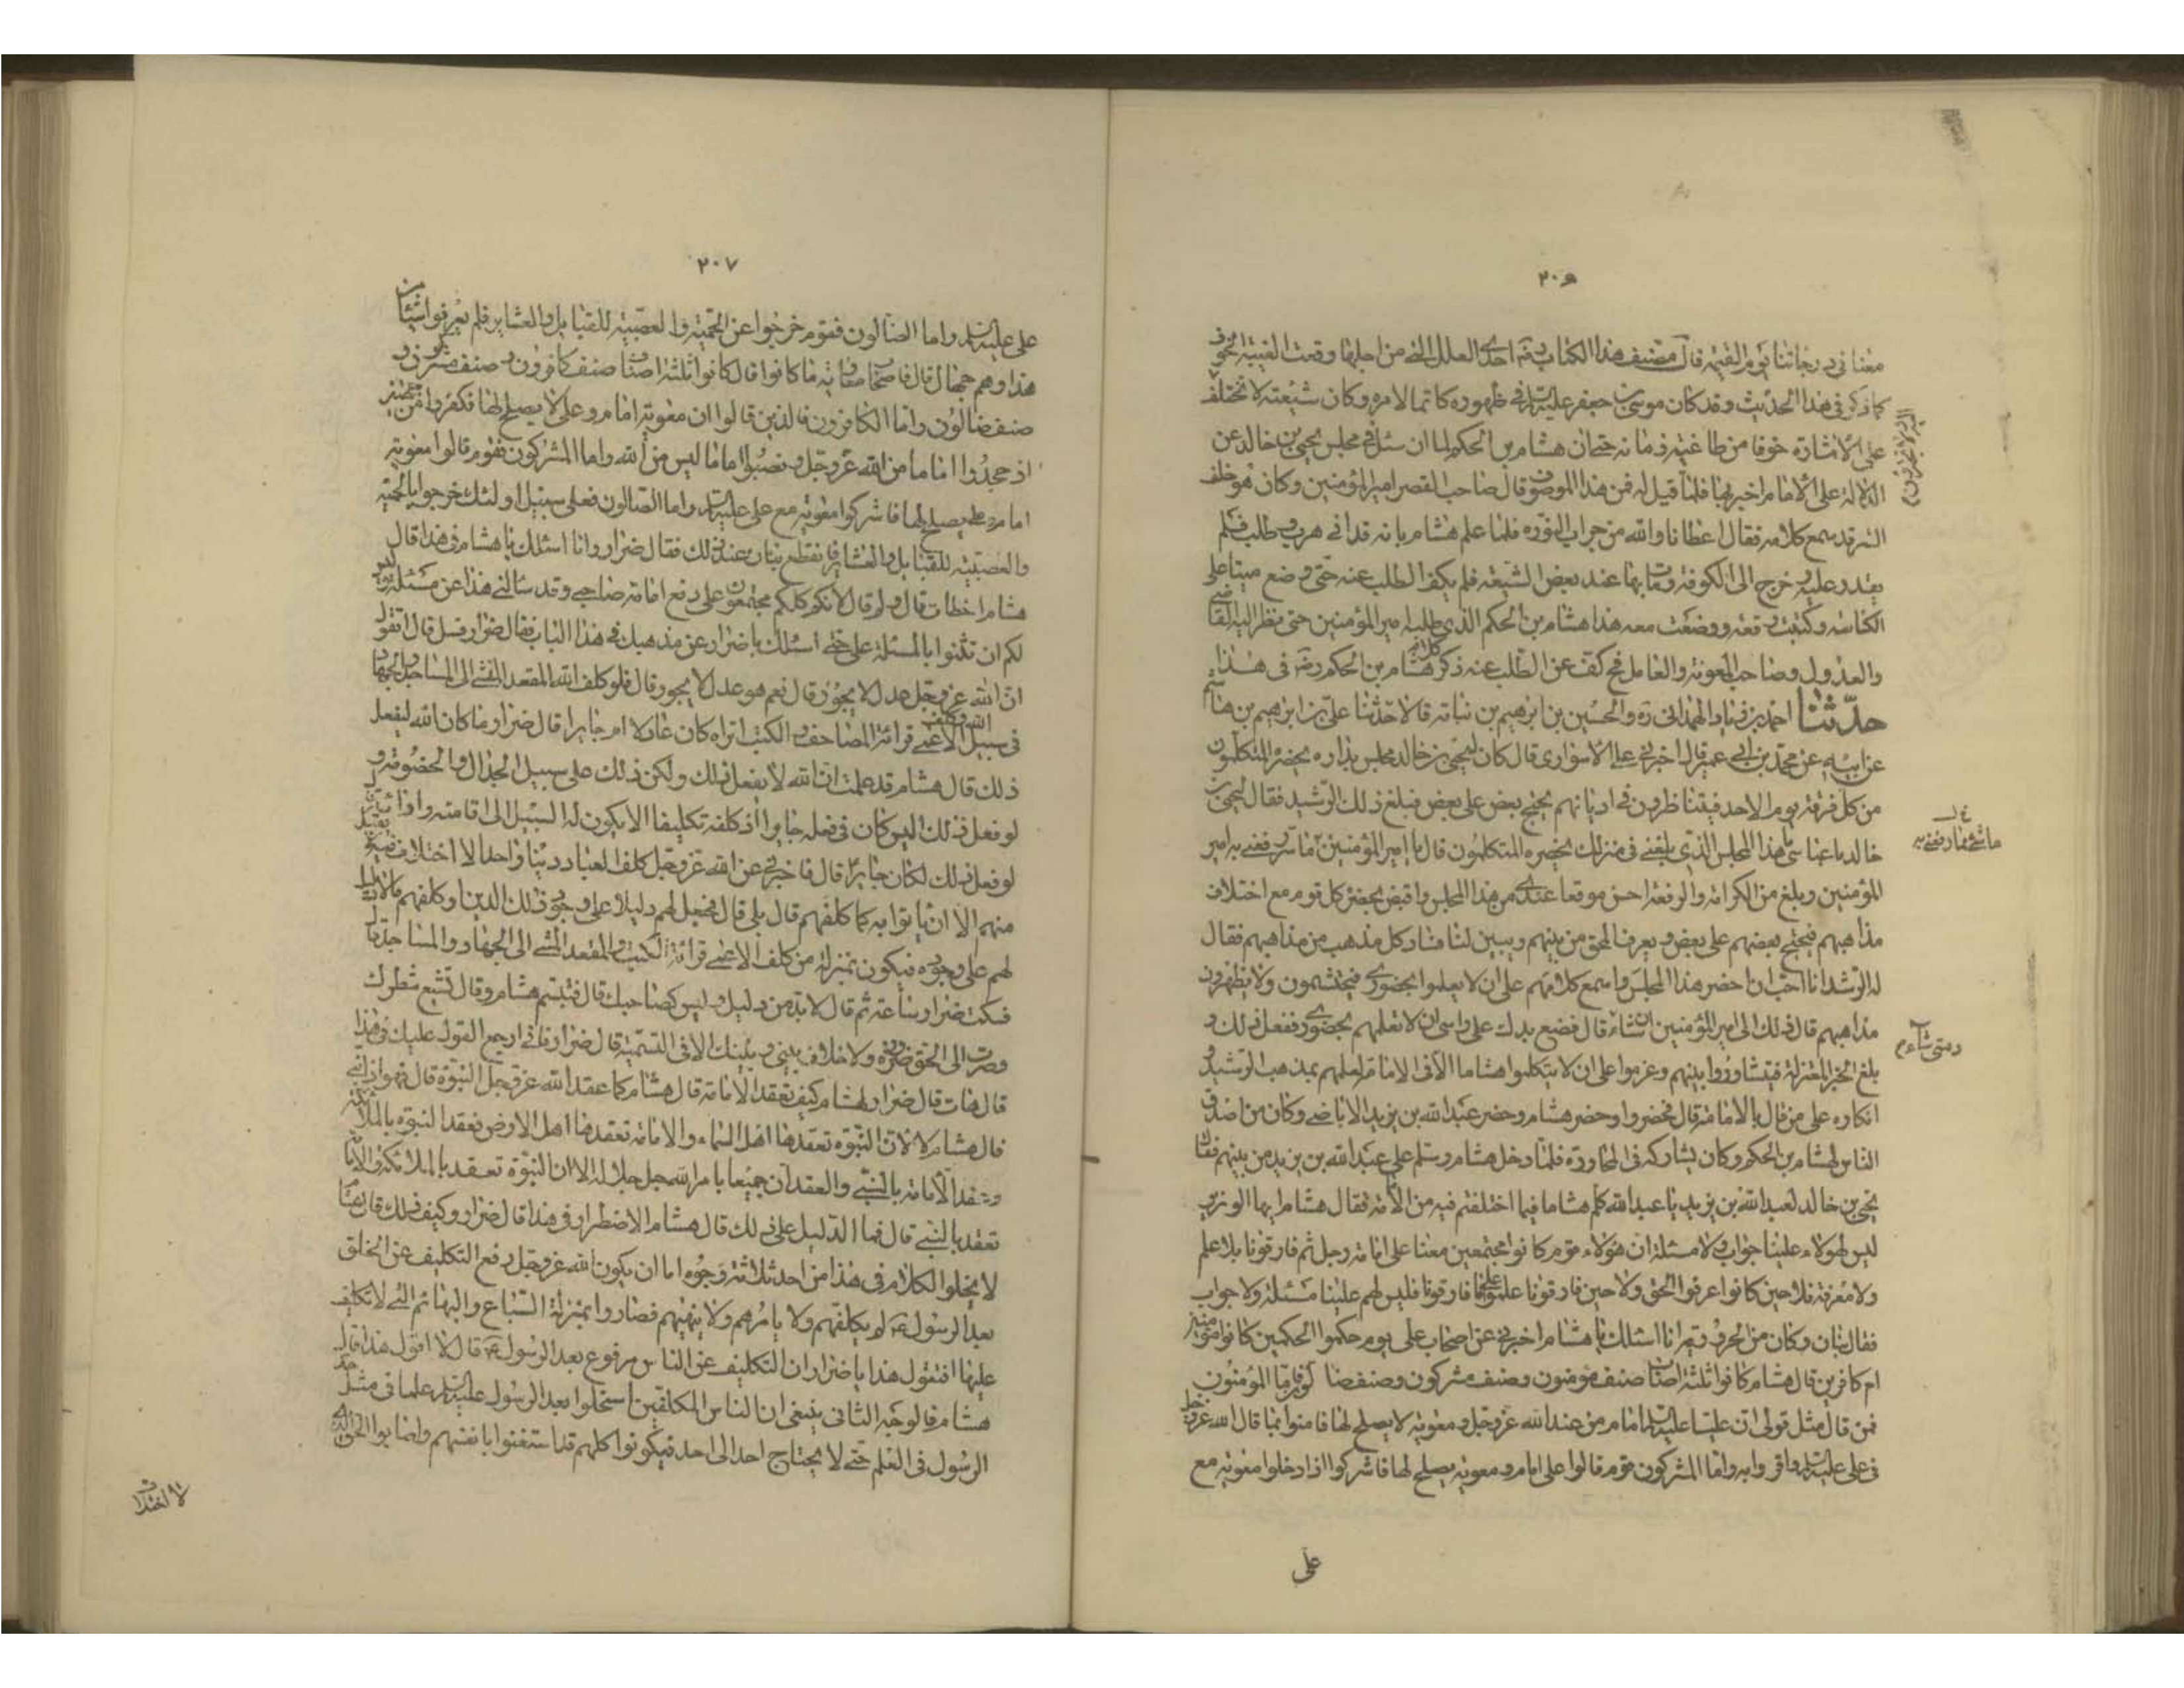 ٢٠٦
معنا فى درجاتنا يوم القيمة قال مصنف هذا الكتاب ره احدى العلل التى من اجلها وقعت الغيبة الخوف
كما ذكر فى هذا الحديث وقد كان موسى بن جعفر عليه السلم فى ظهوره كاتما لامره وكان شيعته لا تختلف
على الاشارة خوفا من طاغية زمانه حتى ان هشام بن الحكم لما ان سئل فى مجلس يحيى بن خالد عن
الدلالة على الامام اخبر بها فلما قيل له فمن هذا الموصوف قال صاحب القصر امير المؤمنين وكان هو خلف
الستر قد سمع كلامه فقال اعطانا والله من جراب النورة فلما علم هشام بانه قد اتى هرب وطلب فلم
يقدر عليه وخرج الى الكوفة ومات بها عند بعض الشيعة فلم يكف الطلب عنه حتى وضع ميتا على
الكناسة وكتبت رقعة ووضعت معه هذا هشام بن الحكم الذى طلبه امير المؤمنين حتى نظر اليه القاضى
والعدول وصاحب المعونة والعامل فح كف عن الطلب عنه ذكر كلام هشام بن الحكم رضه فى هذا
حدثنا احمد بن زياد الهمدانى ره والحسين بن ابرهيم بن نباته قالا حدثنا على بن ابرهيم بن هاشم
عن ابيه عن محمد بن ابى عمير قال اخبرنى على الاسوارى قال كان ليحيى بن خالد مجلس بداره يحضره المتكلمون
من كل فرقة يوم الاحد فيتناظرون فى اديانهم يحتج بعض على بعض فبلغ ذلك الرشيد فقال ليحيى بن
خالد يا عباسى ما هذا المجلس الذى بلغنى فى منزلك يحضره المتكلمون قال يا امير المؤمنين ما شىء رفعنى به امير
المؤمنين وبلغ من الكرامة والرفعة احسن موقعا عندى من هذا المجلس يحضره كل قوم مع اختلاف
مذاهبهم فيحتج بعضهم على بعض ويعرف المحق من بينهم ويبين لنا فساد كل مذهب من مذاهبهم فقال
له الرشيد انا احب ان احضر هذا المجلس واسمع كلامهم على ان لا يعلموا بحضورى فيحتشمون ولا يظهرون
مذاهبهم قال ذلك الى امير المؤمنين ان شاء قال فضع يدك على راسى ان لا تعلمهم بحضورى ففعل ذلك و
بلغ الخبر المعتزلة فتشاوروا بينهم وعزموا على ان لا يتكلموا هشاما الا فى الامامة لعلمهم بمذهب الرشيد و
انكاره على من قال بالامامة قال فحضروا وحضر هشام وحضر عبد الله بن يزيد الاباضى وكان من اصدق
الناس لهشام بن الحكم وكان يشاركه فى المحاورة فلما دخل هشام وسلم على عبد الله بن يزيد من بينهم فقال
يحيى بن خالد لعبد الله بن يزيد يا عبد الله كلم هشاما فيما اختلفتم فيه من الامامة فقال هشام ايها الوزير
ليس لهؤلاء علينا جواب ولا مسئلة ان هؤلاء قوم كانوا مجتمعين معنا على امامة رجل ثم فارقونا بلا علم
ولا معرفة فلا حين كانوا عرفوا الحق ولا حين فارقونا علموا على ما فارقونا فليس لهم علينا مسئلة ولا جواب
فقال بنان وكان من الحرورية انا اسئلك يا هشام اخبرنى عن اصحاب على يوم حكموا الحكمين كانوا مؤمنين
ام كافرين قال هشام كانوا ثلثة اصناف صنف مؤمنون وصنف مشركون وصنف ضالون فاما المؤمنون
فمن قال مثل قولى ان عليا عليه السلم امام من عند الله عز وجل ومعوية لا يصلح لها فامنوا بما قال الله عز وجل
فى على عليه السلم واقروا به واما المشركون فقوم قالوا على امام ومعوية يصلح لها فاشركوا اذ ادخلوا معوية مع
على
ما شىء مما رفعنى به
متى شاء
٢٠٧
على عليه السلم واما الضالون فقوم خرجوا عن الحمية والعصبية للقبايل والعشاير فلم يعرفوا شيئا من
هذا وهم جهال قال فاصحاب معوية ما كانوا قال كانوا ثلثة اصناف صنف كافرون وصنف مشركون و
صنف ضالون واما الكافرون فالذين قالوا ان معوية امام وعلى لا يصلح لها فكفروا من جهتين
اذ جحدوا اماما من الله عز وجل ونصبوا اماما ليس من الله واما المشركون فقوم قالوا معوية
امام وعلى يصلح لها فاشركوا معوية مع على عليه السلم واما الضالون فعلى سبيل اولئك خرجوا بالحمية
والعصبية للقبايل والعشاير فانقطع بنان عند ذلك فقال ضرار وانا اسئلك يا هشام فى هذا قال
هشام اخطات قال ولم قال لانكم كلكم مجتمعون على دفع امامة صاحبى وقد سالنى هذا عن مسئلة وليس
لكم ان تثنوا بالمسئلة على حتى اسئلك يا ضرار عن مذهبك فى هذا الباب فقال ضرار فسل قال اتقول
ان الله عز وجل عدل لا يجور قال نعم هو عدل لا يجور قال فلو كلف الله المقعد المشى الى المساجد والجهاد
فى سبيل الله وكلف الاعمى قرائة المصاحف والكتب اتراه كان عادلا ام جايرا قال ضرار ما كان الله ليفعل
ذلك قال هشام قد علمت ان الله لا يفعل ذلك ولكن ذلك على سبيل الجدال والخصومة و
لو فعل ذلك اليس كان فى فعله جايرا اذ كلفه تكليفا لا يكون له السبيل الى اقامته وادائه قال
لو فعل ذلك لكان جايرا قال فاخبرنى عن الله عز وجل كلف العباد دينا واحدا لا اختلاف فيه لا يقبل
منهم الا ان ياتوا به كما كلفهم قال بلى قال فجعل لهم دليلا على وجود ذلك الدين او كلفهم ما لا دليل
لهم على وجوده فيكون بمنزلة من كلف الاعمى قرائة الكتب والمقعد المشى الى الجهاد والمساجد قال
فسكت ضرار ساعة ثم قال لا بد من دليل وليس كصاحبك قال فتبسم هشام وقال تشيع شطرك
وصرت الى الحق ضرورة ولا خلاف بينى وبينك الا فى التسمية قال ضرار فانى ارجع القول عليك فى هذا
قال هات قال ضرار لهشام كيف تعقد الامامة قال هشام كما عقد الله عز وجل النبوة قال فهو اذا نبى
قال هشام لا لان النبوة تعقدها اهل السماء والامامة تعقدها اهل الارض فعقد النبوة بالملائكة
وعقد الامامة بالنبى والعقدان جميعا بامر الله جل جلاله الا ان النبوة تعقد بالملائكة والامامة
تعقد بالنبى قال فما الدليل على ذلك قال هشام الاضطرار فى هذا قال ضرار وكيف ذلك قال هشام
لا يخلوا الكلام فى هذا من احد ثلاثة وجوه اما ان يكون الله عز وجل رفع التكليف عن الخلق
بعد الرسول ص لم يكلفهم ولا يامرهم ولا ينهيهم فصاروا بمنزلة السباع والبهائم التى لا تكليف
عليها افتقول هذا يا ضرار ان التكليف عن الناس مرفوع بعد الرسول ص قال لا اقول هذا قال
هشام فالوجه الثانى ينبغى ان الناس المكلفين استحلوا بعد الرسول عليه السلم علما فى مثل حد
الرسول فى العلم حتى لا يحتاج احد الى احد فيكونوا كلهم قد استغنوا بانفسهم واصابوا الحق الذى
لا اختلاف